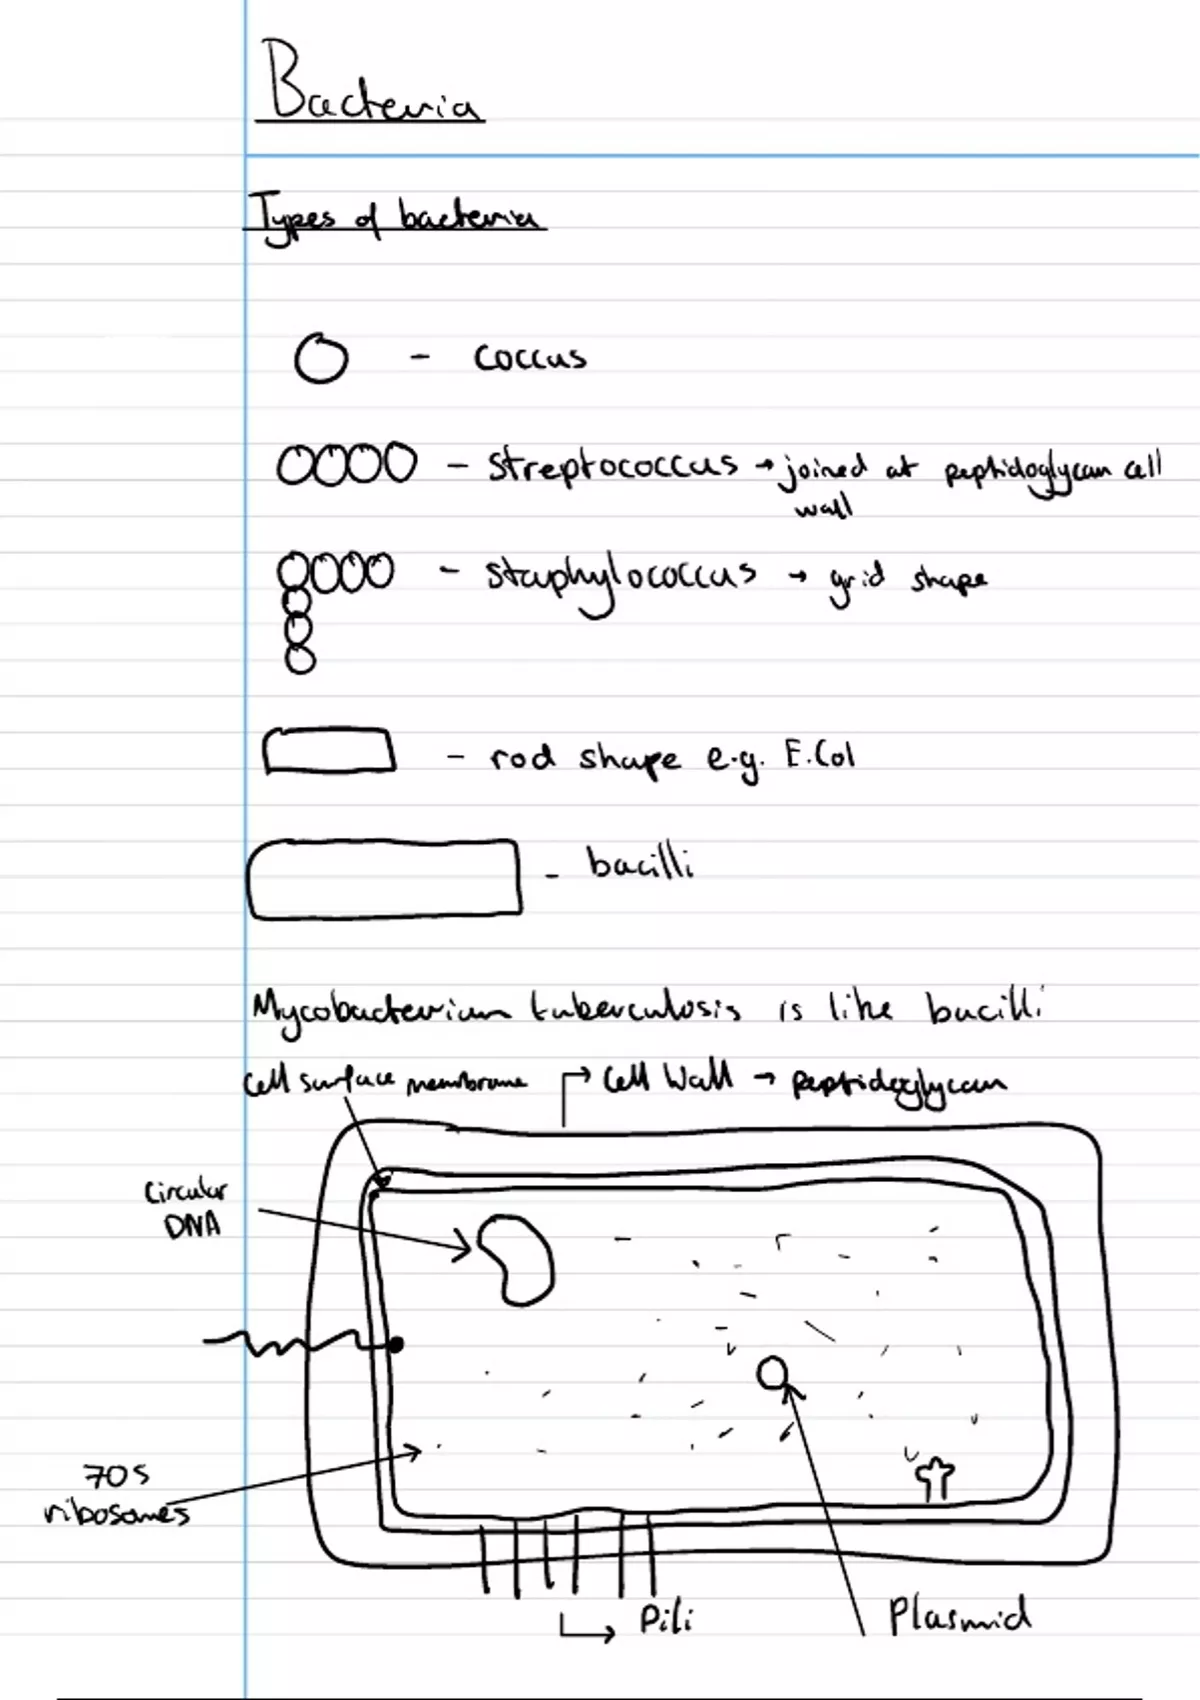 Bacteria
Types of bacteria
- coccus
- streptococcus → joined at peptidoglycan cell
wall
- staphylococcus → grid shape
- rod shape e.g. E.Col
- bacilli
Mycobacterium tuberculosis is like bacilli
Cell surface membrane
Cell Wall → peptidoglycan
Circular
DNA
70S
ribosomes
Pili
Plasmid